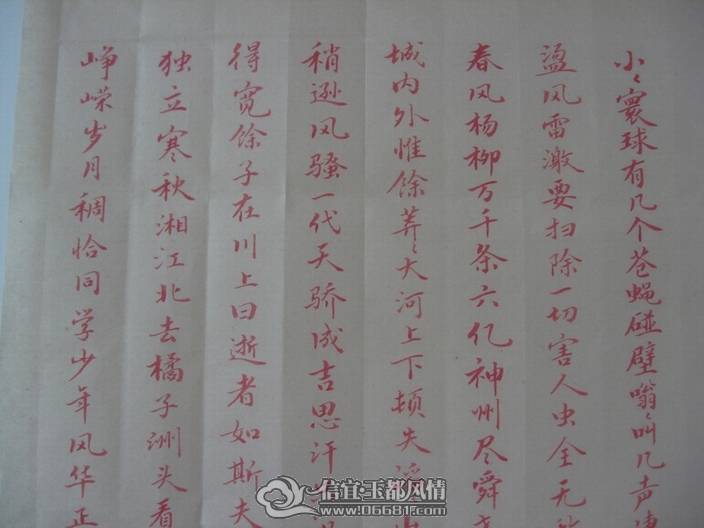 小〻寰球有几个苍蝇碰壁嗡〻叫几声
盪风雷激要扫除一切害人虫全无
春风杨柳万千条六亿神州尽舜
城内外惟馀莽〻大河上下顿失滔
稍逊风骚一代天骄成吉思汗
得宽馀子在川上曰逝者如斯夫
独立寒秋湘江北去橘子洲头看
峥嵘岁月稠恰同学少年风华正
信宜·玉都风情
www.06681.com